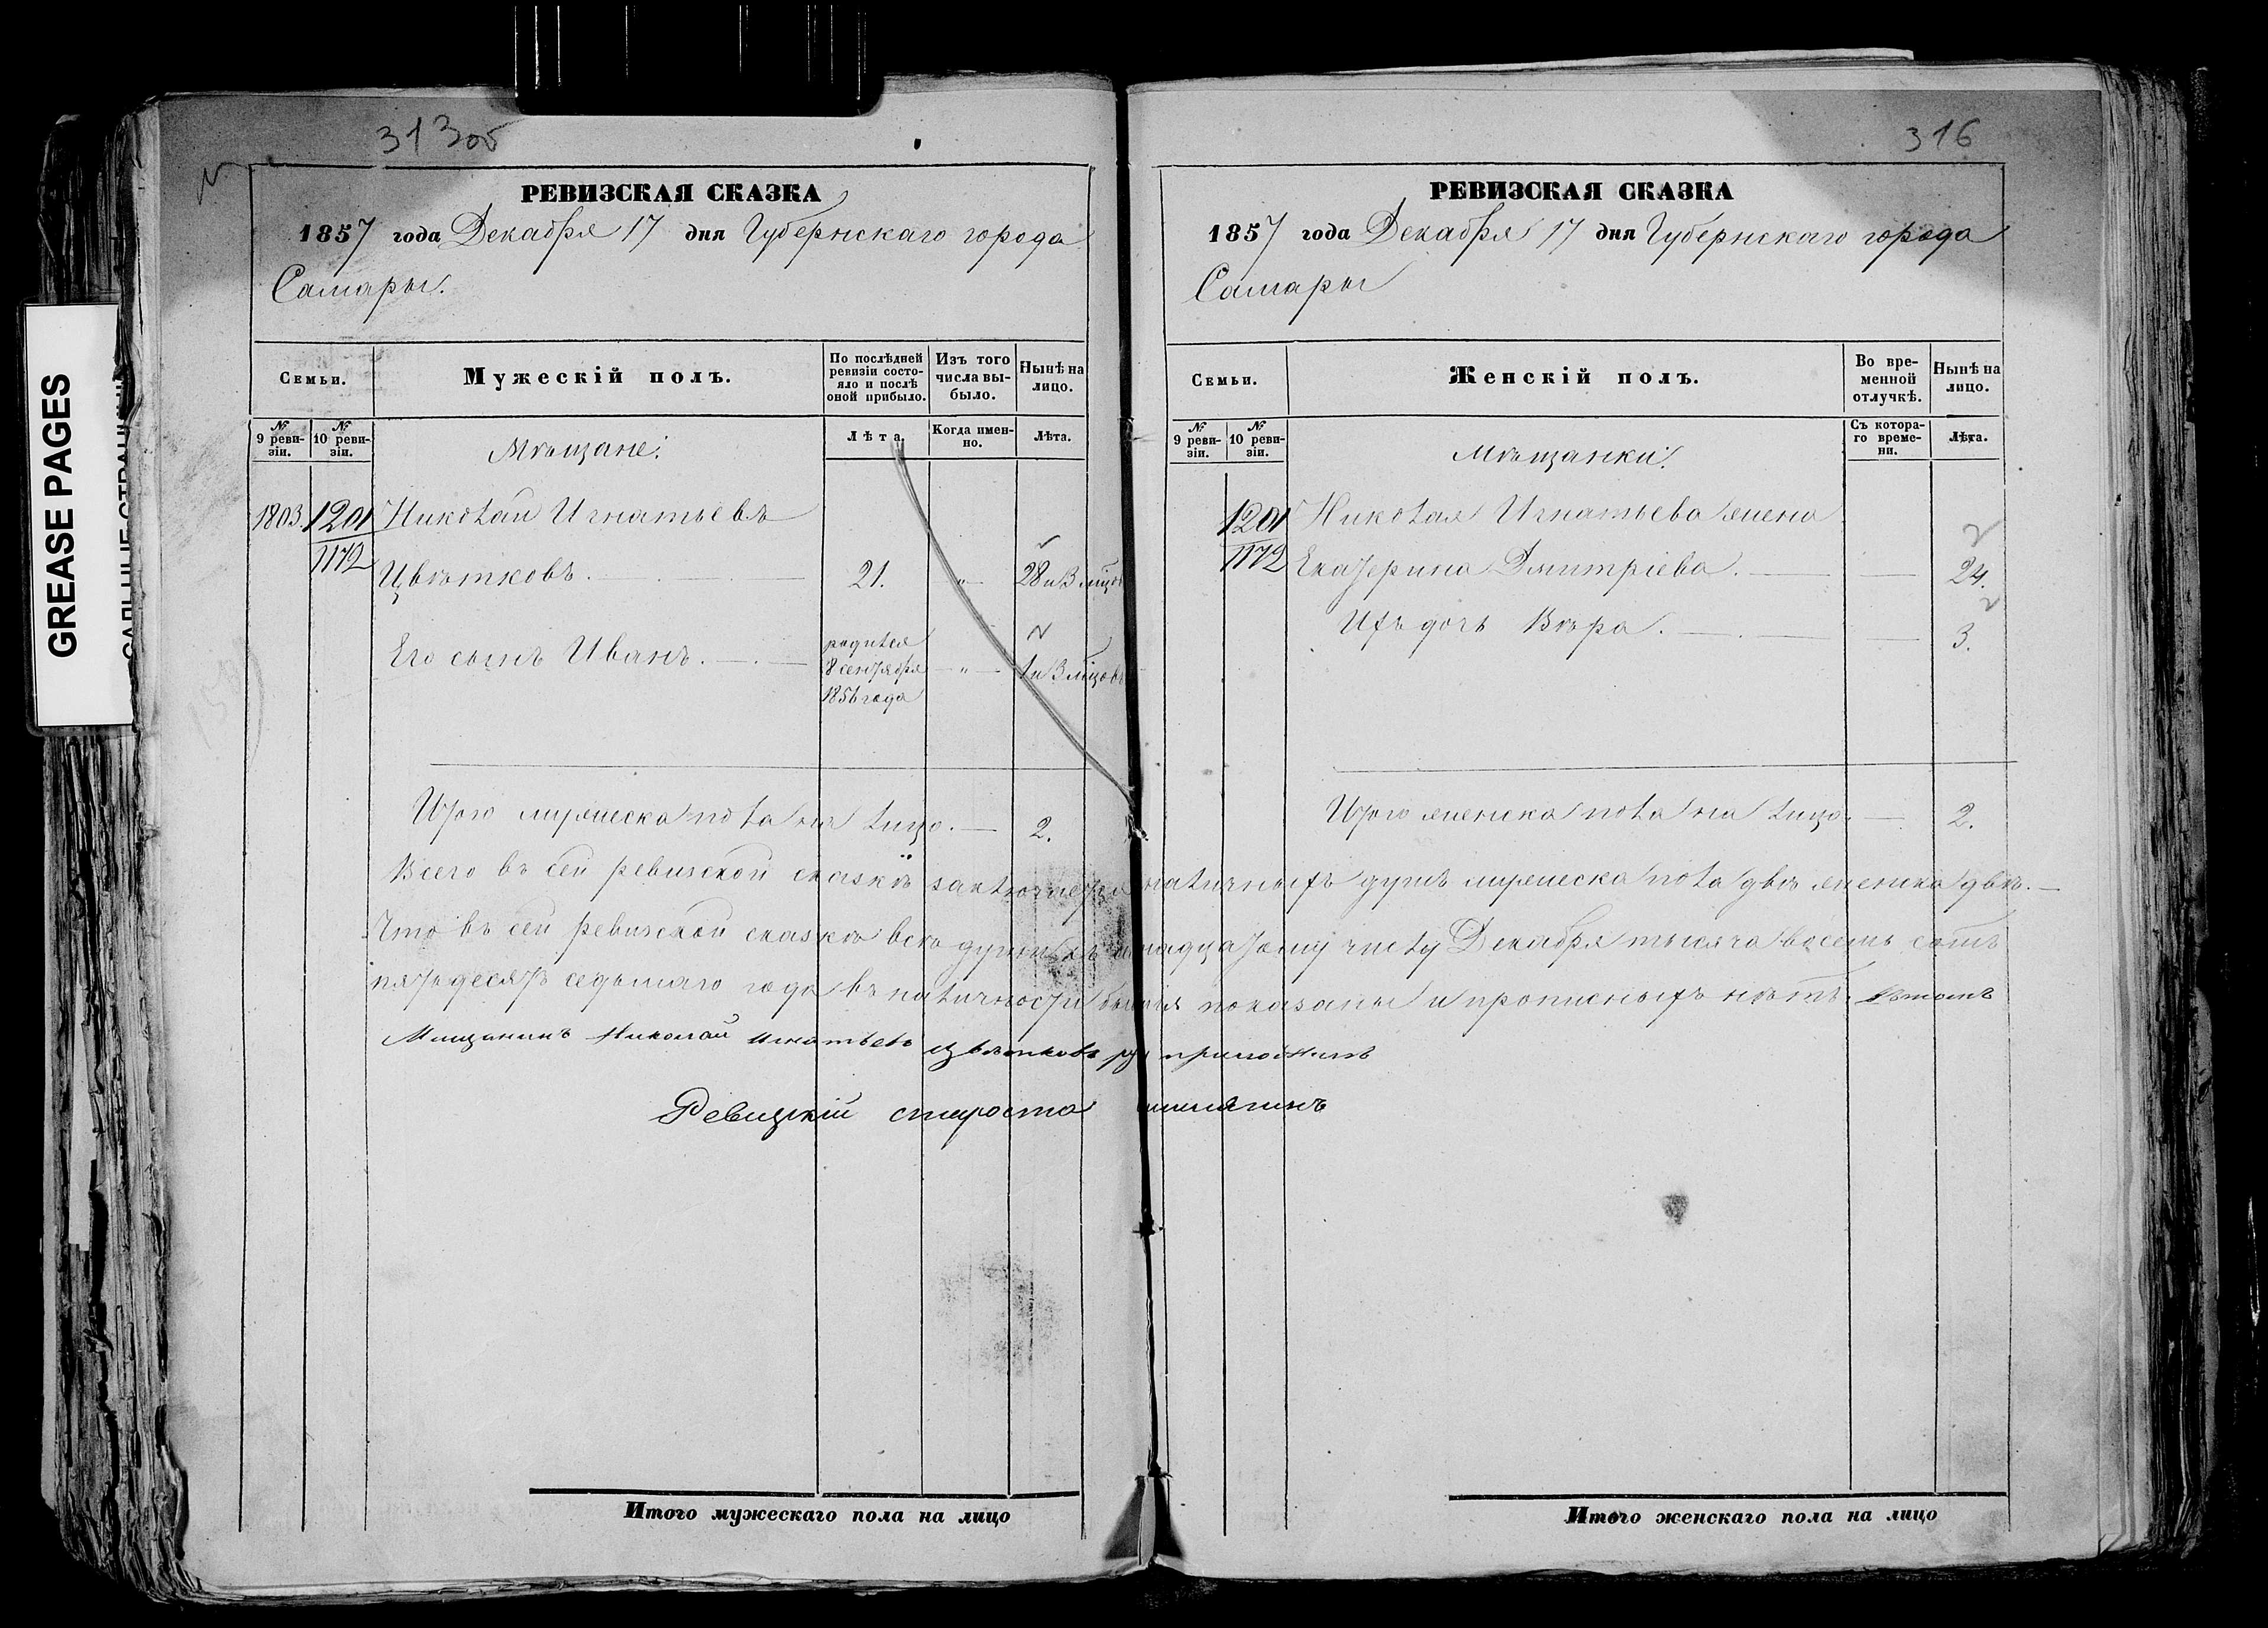 GREASE PAGES
313 об
РЕВИЗСКАЯ СКАЗКА
1857 года Декабря 17 дня Губернскаго города
Самары.
Семьи.
Мужескій полъ.
По послѣдней ревизіи состояло и послѣ оной прибыло.
Изъ того числа выбыло.
Нынѣ на лицо.
№ 9 ревизіи.
№ 10 ревизіи.
Мѣщане:
Лѣта.
Когда именно.
Лѣта.
1803. 1201 Николай Игнатьевъ
1172 Цвѣтковъ. 21. " 28 и 3 мцов
Его сынъ Иванъ. родился 8 сентября 1856 года " 1 и 3 мцовъ
Итого мужеска пола на лицо. 2.
316
РЕВИЗСКАЯ СКАЗКА
1857 года Декабря 17 дня Губернскаго города
Самары
Семьи.
Женскій полъ.
Во временной отлучкѣ.
Нынѣ на лицо.
№ 9 ревизіи.
№ 10 ревизіи.
Мѣщанки:
Съ котораго времени.
Лѣта.
1201 Николая Игнатьева жена
1172 Екатерина Дмитріева. 24.
Ихъ дочь Вѣра. 3.
Итого женска пола на лицо. 2.
Всего въ сей ревизской сказкѣ заключается наличныхъ душъ мужеска пола двѣ женска двѣ.
Что въ сей ревизской сказкѣ всѣ души къ надцатому числу Декабря тысяча восемь сотъ
пятьдесятъ седьмаго года въ наличности бывшія показаны и прописныхъ нѣтъ. въ томъ
Мищанинъ Николай Игнатьевъ Цвѣтковъ руку приложилъ
Ревизкій староста
Итого мужескаго пола на лицо
Итого женскаго пола на лицо